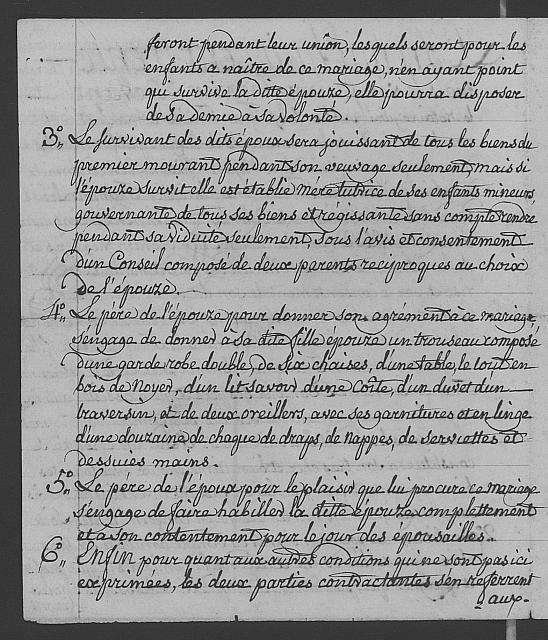 feront pendant leur union, lesquels seront pour les
enfants a naître de ce mariage, n'en ayant point
qui survive la ditte épouze, elle pourra disposer
de sa demie à sa volonté.
3°. Le survivant des dits époux sera jouissant de tous les biens du
premier mourant pendant son veuvage seulement, mais si
l'épouze survit elle est établie mere tutrice de ses enfants mineurs
gouvernante de tous ses biens et régissante sans compte rendre
pendant sa viduité seulement, sous l'avis et consentement
d'un Conseil composé de deux parents reciproques au choix
de l'épouze.
4°. Le père de l'épouze pour donner son agrément à ce mariage,
s'engage de donner a sa dite fille épouze un trouseau composé
d'une garde robe double, de six chaises, d'une table, le tout en
bois de Noyer, d'un lit savoir d'une Coite, d'un duvet d'un
traversin, et de deux oreillers, avec ses garnitures et en linge
d'une douzaine de chaque de draps, de nappes, de serviettes et
dessuies mains.
5°. Le pere de l'époux pour le plaisir que lui procure ce mariage
s'engage de faire habiller la ditte épouze complettement
et a son contentement pour le jour des épousailles.
6°. Enfin pour quant aux autres conditions qui ne sont pas ici
exprimées, les deux parties contractantes s'en referrent
aux